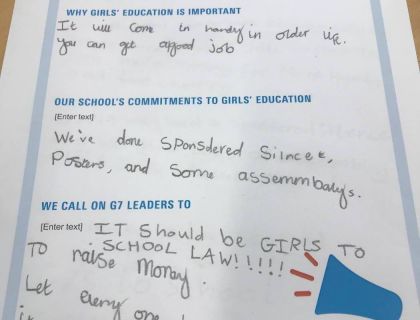 WHY GIRLS' EDUCATION IS IMPORTANT
It will come in handy in older life.
You can get a good job
OUR SCHOOL'S COMMITMENTS TO GIRLS' EDUCATION
[Enter text]
We've done SPonsdered Silnce,
Posters, and some assemmbalys.
WE CALL ON G7 LEADERS TO
[Enter text] IT Should be GIRLS TO
SCHOOL LAW!!!!!
TO raise Money.
Let every one